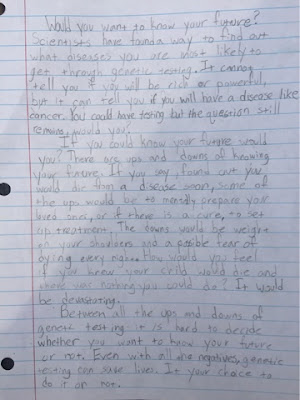 Would you want to know your future?
Scientists have found a way to find out
what diseases you are most likely to
get through genetic testing. It cannot
tell you if you will be rich or powerful,
but it can tell you if you will have a disease like
cancer. You could have testing, but the question still
remains, would you?
If you could know your future would
you? There are ups and downs of knowing
your future. If you say, found out you
would die from a disease soon, some of
the ups would be to mentally prepare your
loved ones, or if there is a cure, to set
up treatment. The downs would be weight
on your shoulders and a posible fear of
dying every night. How would you feel
if you knew your child would die and
there was nothing you could do? It would
be devastating.
Between all the ups and downs of
genetic testing it is hard to decide
whether you want to know your future
or not. Even with all the negatives, genetic
testing can save lives. It your choice to
do it or not.